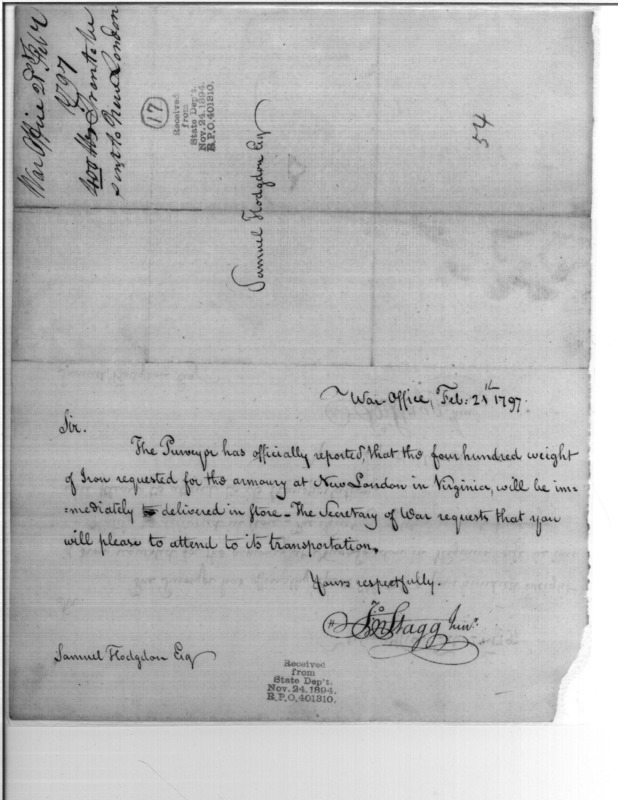 War Office 21st Feb
1797
400 lbs Iron to be
sent to New London
17
Received
from
State Dep't.
Nov. 24, 1894.
R.P.O. 401310.
Samuel Hodgdon Esq
54
War Office, Feb: 21th 1797.
Sir.
The Purveyor has officially reported, that the four hundred weight
of Iron requested for the armoury at New London in Virginia, will be im=
=mediately delivered in store – The Secretary of War requests that you
will please to attend to its transportation.
Yours respectfully.
Jno Stagg Junr.
Samuel Hodgdon Esq
Received
from
State Dep't.
Nov. 24, 1894.
R.P.O. 401310.